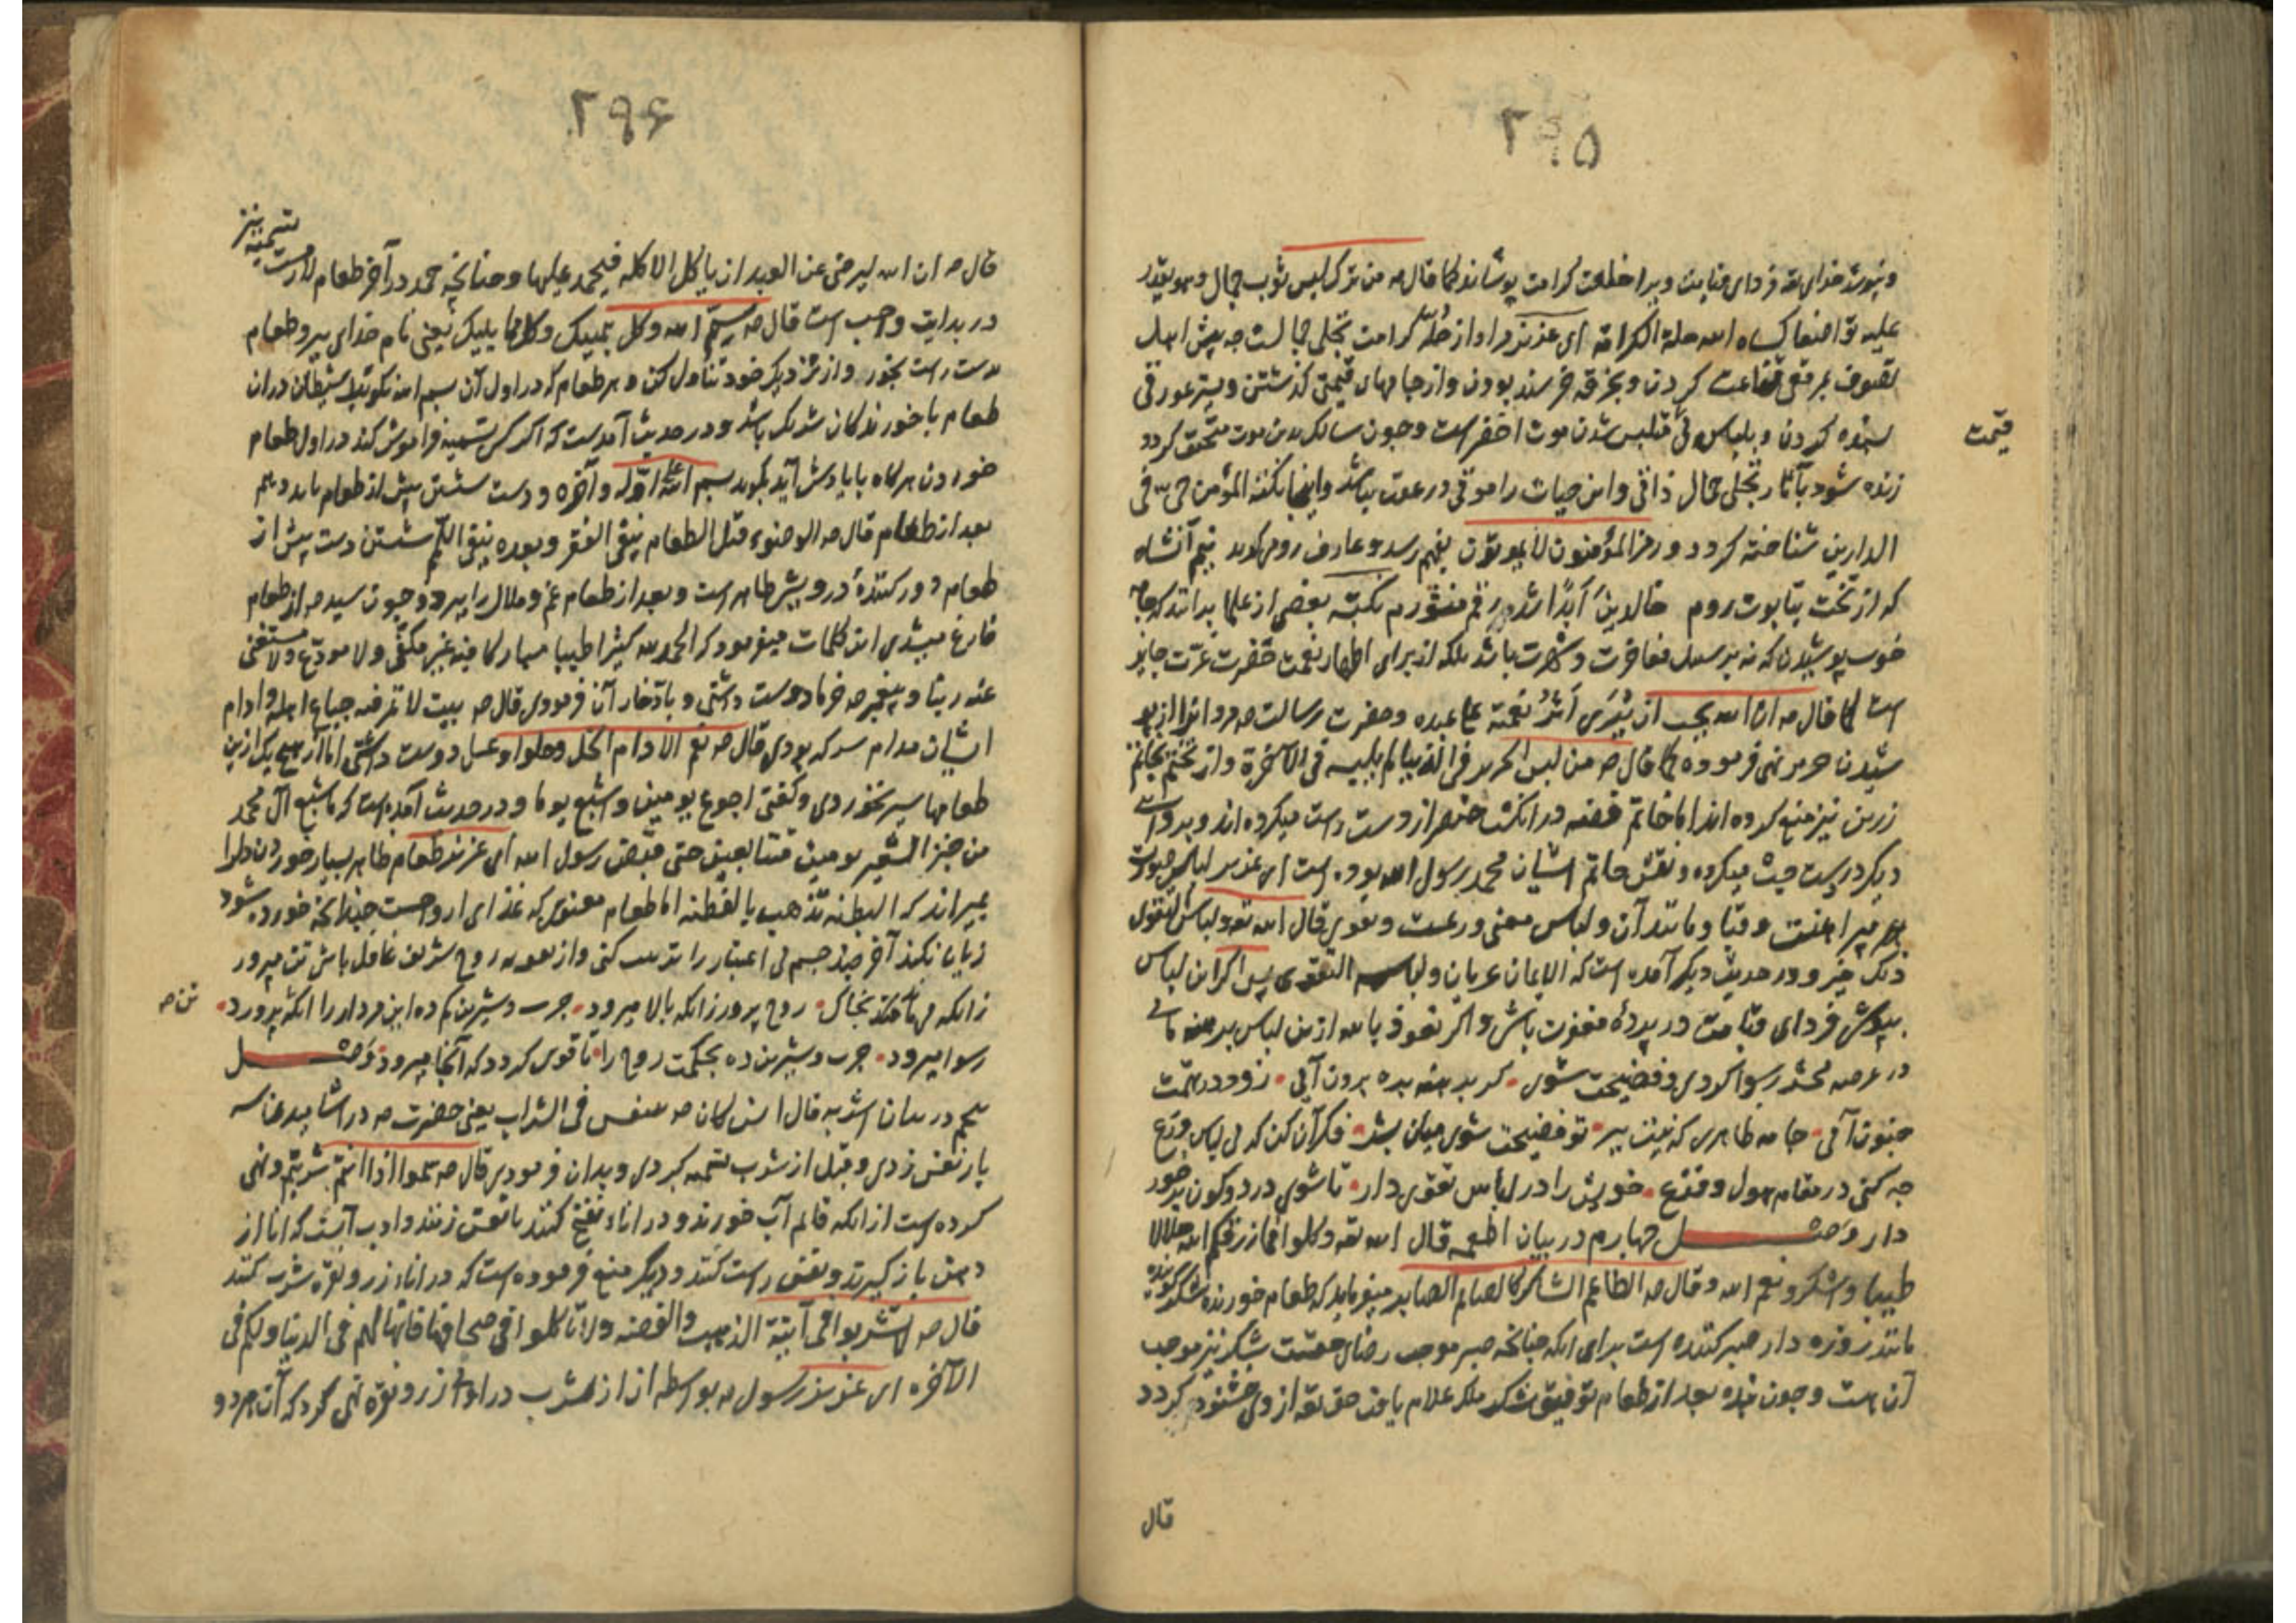 ۲۹۵
و نپوشد خدای تعه فردای قیامت ویرا خلعت کرامت پوشاند کما قال صه من ترک لبس ثوب جمال وهو یقدر
علیه تواضعا کساه الله حلة الکرامة ای عزیز مراد از حلّه کرامت تجلی جمالست چه پیش اهل
تصوف بمرقعی قناعت کردن و بخرقه خرسند بودن و از جامهای قیمتی گذشتن و بستر عورتی
قیمت
بسنده کردن و بلباس متلبس شدن موت اخضر است و چون سالک بدین موت متحقق کردد
زنده شود بآثار تجلی جمال ذاتی و این حیات را موتی در عقب نباشد و اینجا نکته المؤمن حی فی
الدارین شناخته کردد و رمز المؤمنون لا یموتون بفهم رسد و عارف روم کوید نیم آنشاه
که از تخت بتابوت روم خالدین ابدا شد رقم منشورم نکته بعضی از علما بدانند که جامه
خوب پوشیدن که نه بر سبیل مفاخرت و شهرت باشد بلکه از برای اظهار نعمت حضرت عزت جایز
است کما قال صه ان الله یحب ان یُری اثر نعمته علی عبده و حضرت رسالت صه مردانرا از پو
شیدن حریر نهی فرموده کما قال صه من لبس الحریر فی الدنیا لم یلبسه فی الآخرة و از تختم بخاتم
زرین نیز منع کرده اند اما خاتم فضه در انکشت خنصر از دست راست میکرده اند و بروایتی
دیکر در دست چپ میکرده و نقش خاتم ایشان محمد رسول الله بوده است ای عزیز لباس صورت
پیراهنست و قبا و مانند آن و لباس معنی ورعست و تقوی قال الله تعه و لباس التقوی
ذلک خیر و در حدیث دیکر آمده است که الایمان عریان و لباسه التقوی پس اکر این لباس
بپوشی فردای قیامت در پردهٔ مغفرت باش و اکر نعوذ بالله ازین لباس برهنه مانی
در عرصه محشر رسوا کردی و فضیحت شوی • کر برهنه بره برون آئی • زود در تهمت
جنون آئی • جامه ظاهری که نیست ببر • تو فضیحت شوی میان بشر • فکر آن کن که بی لباس ورع
چه کنی در مقام هول و فزع • خویش را در لباس تقوی دار • تا شوی در دو کون برخور
دار وصل چهارم در بیان اطعمه قال الله تعه و کلوا مما رزقکم الله حلالا
طیبا واشکروا نعم الله و قال صه الطاعم الشاکر کالصائم الصابر میفرماید که طعام خورنده شکر کوینده
مانند روزه دار صبر کننده است برای انکه چنانچه صبر موجب رضای حقست شکر نیز موجب
آن هست و چون بنده بعد از طعام توفیق شکر ملک علام یافت حق تعه از وی خشنود کردد
قال
۲۹۶
قال صه ان الله لیرضی عن العبد ان یاکل الاکله فیحمد علیها و چنانچه حمد در آخر طعام لازمست تسمیه نیز
در بدایت واجب است قال صه سمّ الله وکل بیمینک وکل مما یلیک یعنی نام خدای ببر و طعام
بدست راست بخور و از نزدیک خود تناول کن و هر طعام که در اول آن بسم الله نکوئید شیطان در آن
طعام با خورندکان شریک باشد و در حدیث آمدست که اکر کسی تسمیه فراموش کند در اول طعام
خوردن هرکاه بایادش آید بکوید بسم الله علی اوله و آخره و دست شستن پیش از طعام باید و هم
بعد از طعام قال صه الوضوء قبل الطعام ینفی الفقر و بعده ینفی اللمم شستن دست پیش از
طعام دور کنندهٔ درویش ظاهر است و بعد از طعام غم و ملال را ببرد و چون سید صه از طعام
فارغ میشدی این کلمات میفرمود که الحمد لله کثیرا طیبا مبارکا فیه غیر مکفّی ولا مودّع ولا مستغنی
عنه ربنا و پیغمبر صه خرما دوست داشتی و بادّخار آن فرمودی قال صه بیت لا تمر فیه جیاع اهله و ادام
ایشان مدام سرکه بودی قال صه نعم الادام الخل و حلوا و عسل دوست داشتی اما از هیچ یک ازین
طعامها سیر نخوردی و کفتی اجوع یومین و اشبع یوما و در حدیث آمده است که ما شبع آل محمد
من خبز الشعیر یومین متتابعین حتی قبض رسول الله ای عزیز طعام ظاهر بسیار خوردن دلرا
بمیراند که البطنه تذهب بالفطنه اما طعام معنوی که غذای ارواحست چندانچه خورده شود
زیان نکند آخر چند جسم بی اعتبار را تربیت کنی و از روح شریف غافل باش تن مپرور
زانکه بخاک • روح پرور زانکه بالا میرود • چرب و شیرین کم ده این مردار را انکه پرورد •
تن صه
رسوا میرود • چرب و شیرین ده بحکمت روح را • تا قوی کردد که آنجا میرود • وصل
پنجم در بیان اشربه قال انس کان صه یتنفس فی الشراب یعنی حضرت صه در آشامیدن سه
بار نفس زدی و قبل از شرب تسمیه کردی و بدان فرمودی قال صه سمّوا اذا انتم شربتم و نهی
کرده است از انکه قایم آب خورند و در اناء نفخ کنند یا نفس زنند و ادب آنست که انا از
دهن باز کیرند و نفس راست کنند و دیکر منع فرموده است که در اناء زر و نقره شرب کنند
قال صه لا تشربوا فی آنیة الذهب والفضه ولا تاکلوا فی صحافها فانها لهم فی الدنیا ولکم فی
الآخره ای عزیز رسول صه بواسطه آن از شرب در اوانی زر و نقره نهی کرد که آن هر دو